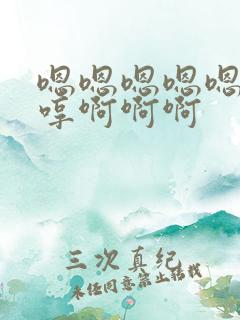 嗯嗯嗯嗯嗯
哼啊啊啊
三次真纪
未经同意禁止转载